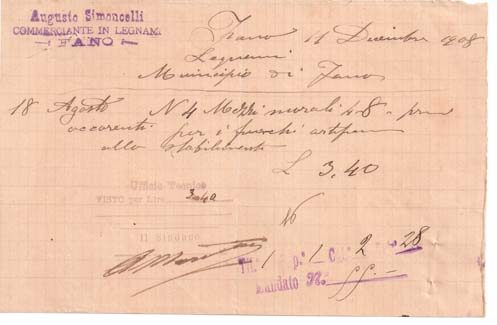 Augusto Simoncelli
COMMERCIANTE IN LEGNAMI
FANO
Fano 11 Dicembre 1908
Legnami
Municipio di Fano
18 Agosto N 4 Mezzi murali 4-8
occorenti per i fuochi
allo stabilimento
L 3,40
Ufficio Tecnico
VISTO per Lire 3.40
Il Sindaco
16
Tit. 1 p. 1 C. 2 28
Mandato N.